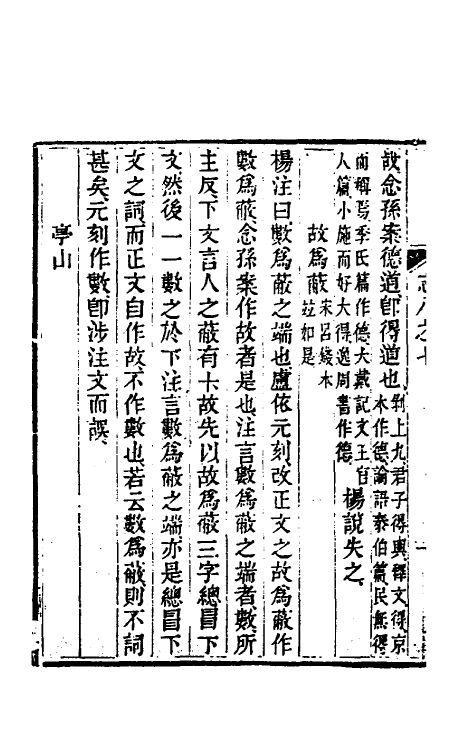 志八之七
說念孫案德道卽得道也剝上九君子得輿釋文得京
本作德論語泰伯篇民無得
而稱焉季氏篇作德大戴記文王官
人篇小施而好大得逸周書作德楊說失之
故爲蔽宋呂錢本
竝如是
楊注曰數爲蔽之端也盧依元刻改正文之故爲蔽作
數爲蔽念孫案作故者是也注言數爲蔽之端者數所
主反下文言人之蔽有十故先以故爲蔽三字總冒下
文然後一一數之於下注言數爲蔽之端亦是總冒下
文之詞而正文自作故不作數也若云數爲蔽則不詞
甚矣元刻作數卽涉注文而誤
亭山